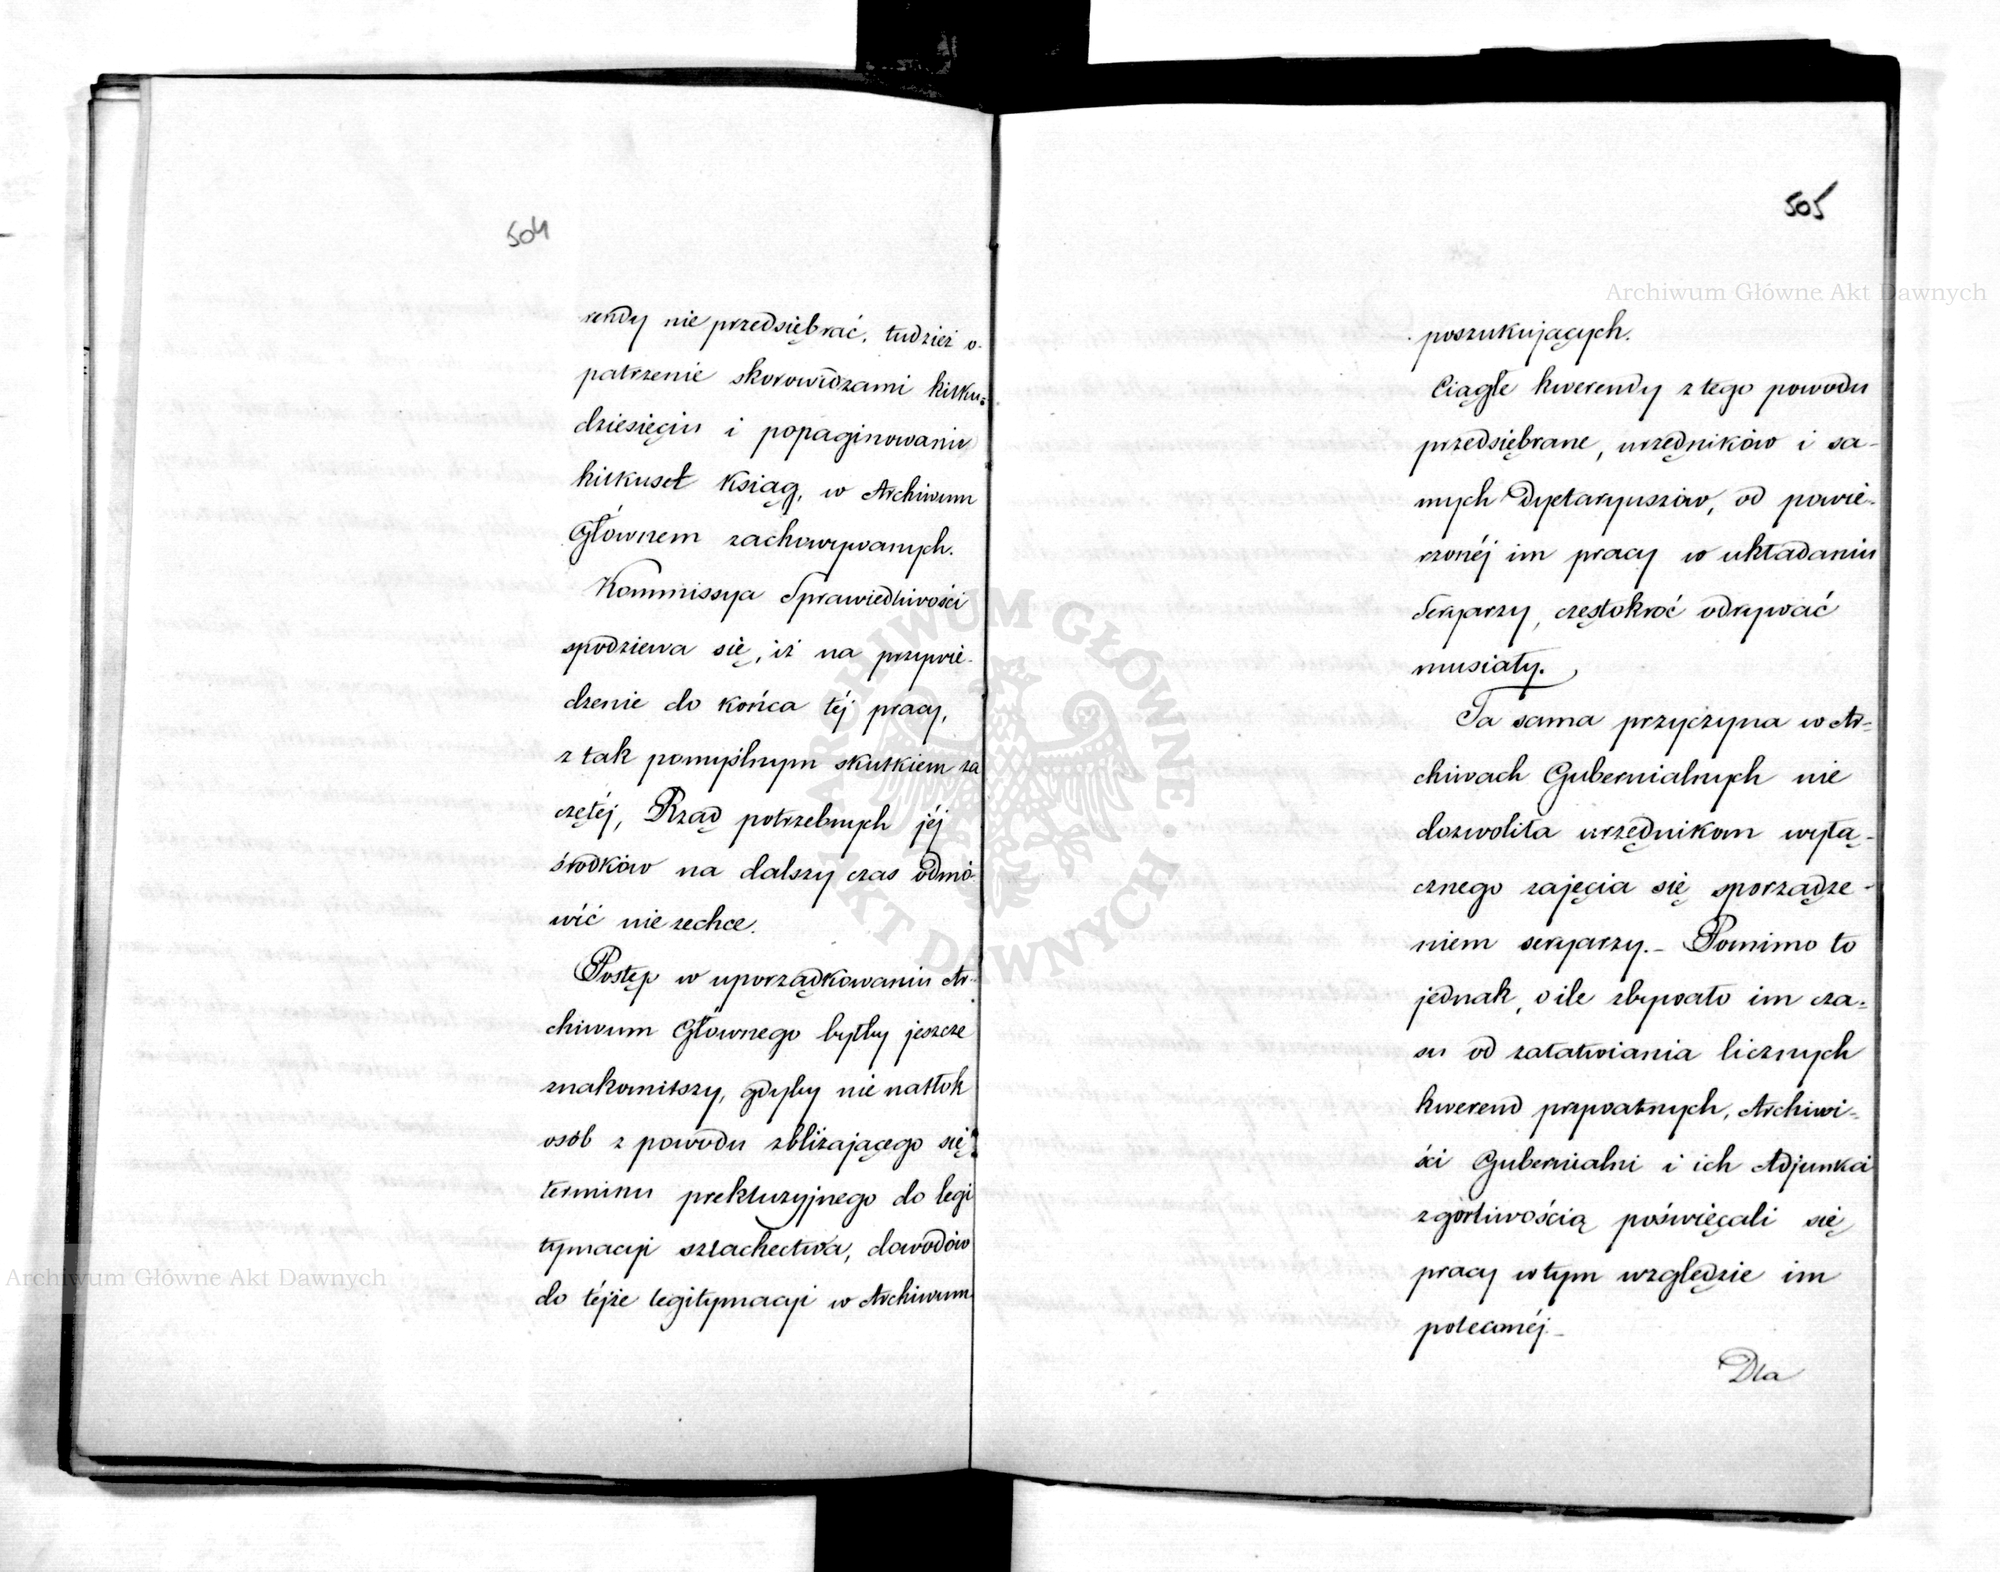 504
rendy nie przedsiębrać, tudzież o-
patrzenie skorowidzami kilku-
dziesięciu i popaginowanie
kilkuset ksiąg, w Archiwum
Głównem zachowywanych.
Kommissya Sprawiedliwości
spodziewa się, iż na przywie-
dzenie do końca téj pracy,
z tak pomyślnym skutkiem za
czętéj, Rząd potrzebnych jéj
środków na dalszy czas odmó-
wić nie zechce.
Postęp w uporządkowaniu Ar-
chiwum Głównego byłby jeszcze
znakomitszy, gdyby nie natłok
osób z powodu zbliżającego się
terminu prekluzyjnego do legi
tymacyi szlachectwa, dowodów
do téjże legitymacyi w Archiwum
505
poszukujących.
Ciągłe kwerendy z tego powodu
przedsiębrane, urzędników i sa-
mych Dyetaryuszów, od powie-
rzonéj im pracy w układaniu
Seryarzy, częstokroć odrywać
musiały.
Ta sama przyczyna w Ar-
chiwach Gubernialnych nie
dozwoliła urzędnikom wyłą-
cznego zajęcia się sporządze-
niem seryarzy. – Pomimo to
jednak, o ile zbywało im cza-
su od załatwiania licznych
kwerend prywatnych, Archiwi-
ści Gubernialni i ich Adjunkci
z gorliwością poświęcali się
pracy w tym względzie im
poleconéj. –
Dla
Archiwum Główne Akt Dawnych
Archiwum Główne Akt Dawnych
ARCHIWUM GŁÓWNE AKT DAWNYCH